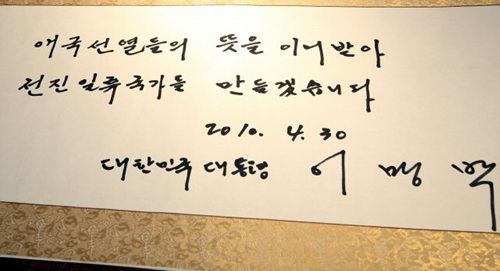 애국선열들의 뜻을 이어받아
선진일류국가를 만들겠습니다
2010. 4. 30
대한민국 대통령 이 명 박